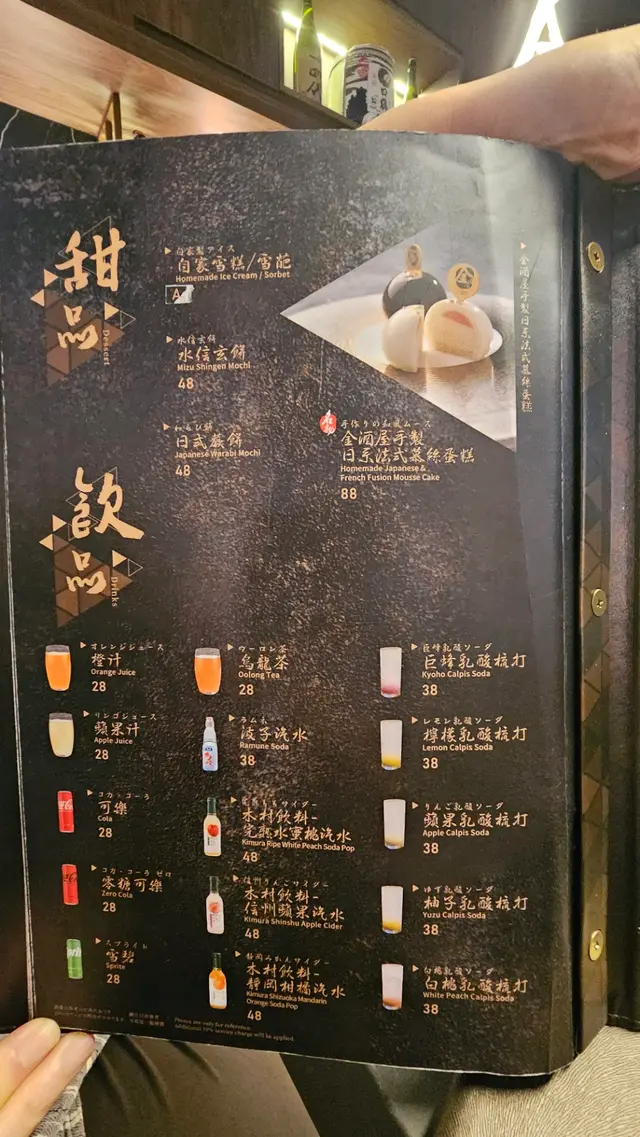 甜品
Dessert
自家製アイス
自家雪糕/雪葩
Homemade Ice Cream / Sorbet
水信玄餅
水信玄餅
Mizu Shingen Mochi
48
わらび餅
日式蕨餅
Japanese Warabi Mochi
48
金酒屋手製日系法式慕絲蛋糕
手作りの和風ムース
金酒屋手製
日系法式慕絲蛋糕
Homemade Japanese &
French Fusion Mousse Cake
88
飲品
Drinks
オレンジジュース
橙汁
Orange Juice
28
リンゴジュース
蘋果汁
Apple Juice
28
コカ・コーラ
可樂
Cola
28
コカ・コーラ ゼロ
零糖可樂
Zero Cola
28
スプライト
雪碧
Sprite
28
ウーロン茶
烏龍茶
Oolong Tea
28
ラムネ
波子汽水
Ramune Soda
38
木村飲料-
完熟水蜜桃汽水
Kimura Ripe White Peach Soda Pop
48
信州りんごサイダー
木村飲料-
信州蘋果汽水
Kimura Shinshu Apple Cider
48
静岡みかんサイダー
木村飲料-
靜岡柑橘汽水
Kimura Shizuoka Mandarin
Orange Soda Pop
48
巨峰乳酸ソーダ
巨峰乳酸梳打
Kyoho Calpis Soda
38
レモン乳酸ソーダ
檸檬乳酸梳打
Lemon Calpis Soda
38
りんご乳酸ソーダ
蘋果乳酸梳打
Apple Calpis Soda
38
ゆず乳酸ソーダ
柚子乳酸梳打
Yuzu Calpis Soda
38
白桃乳酸ソーダ
白桃乳酸梳打
White Peach Calpis Soda
38
Photos are only for reference.
additional 10% service charge will be applied.